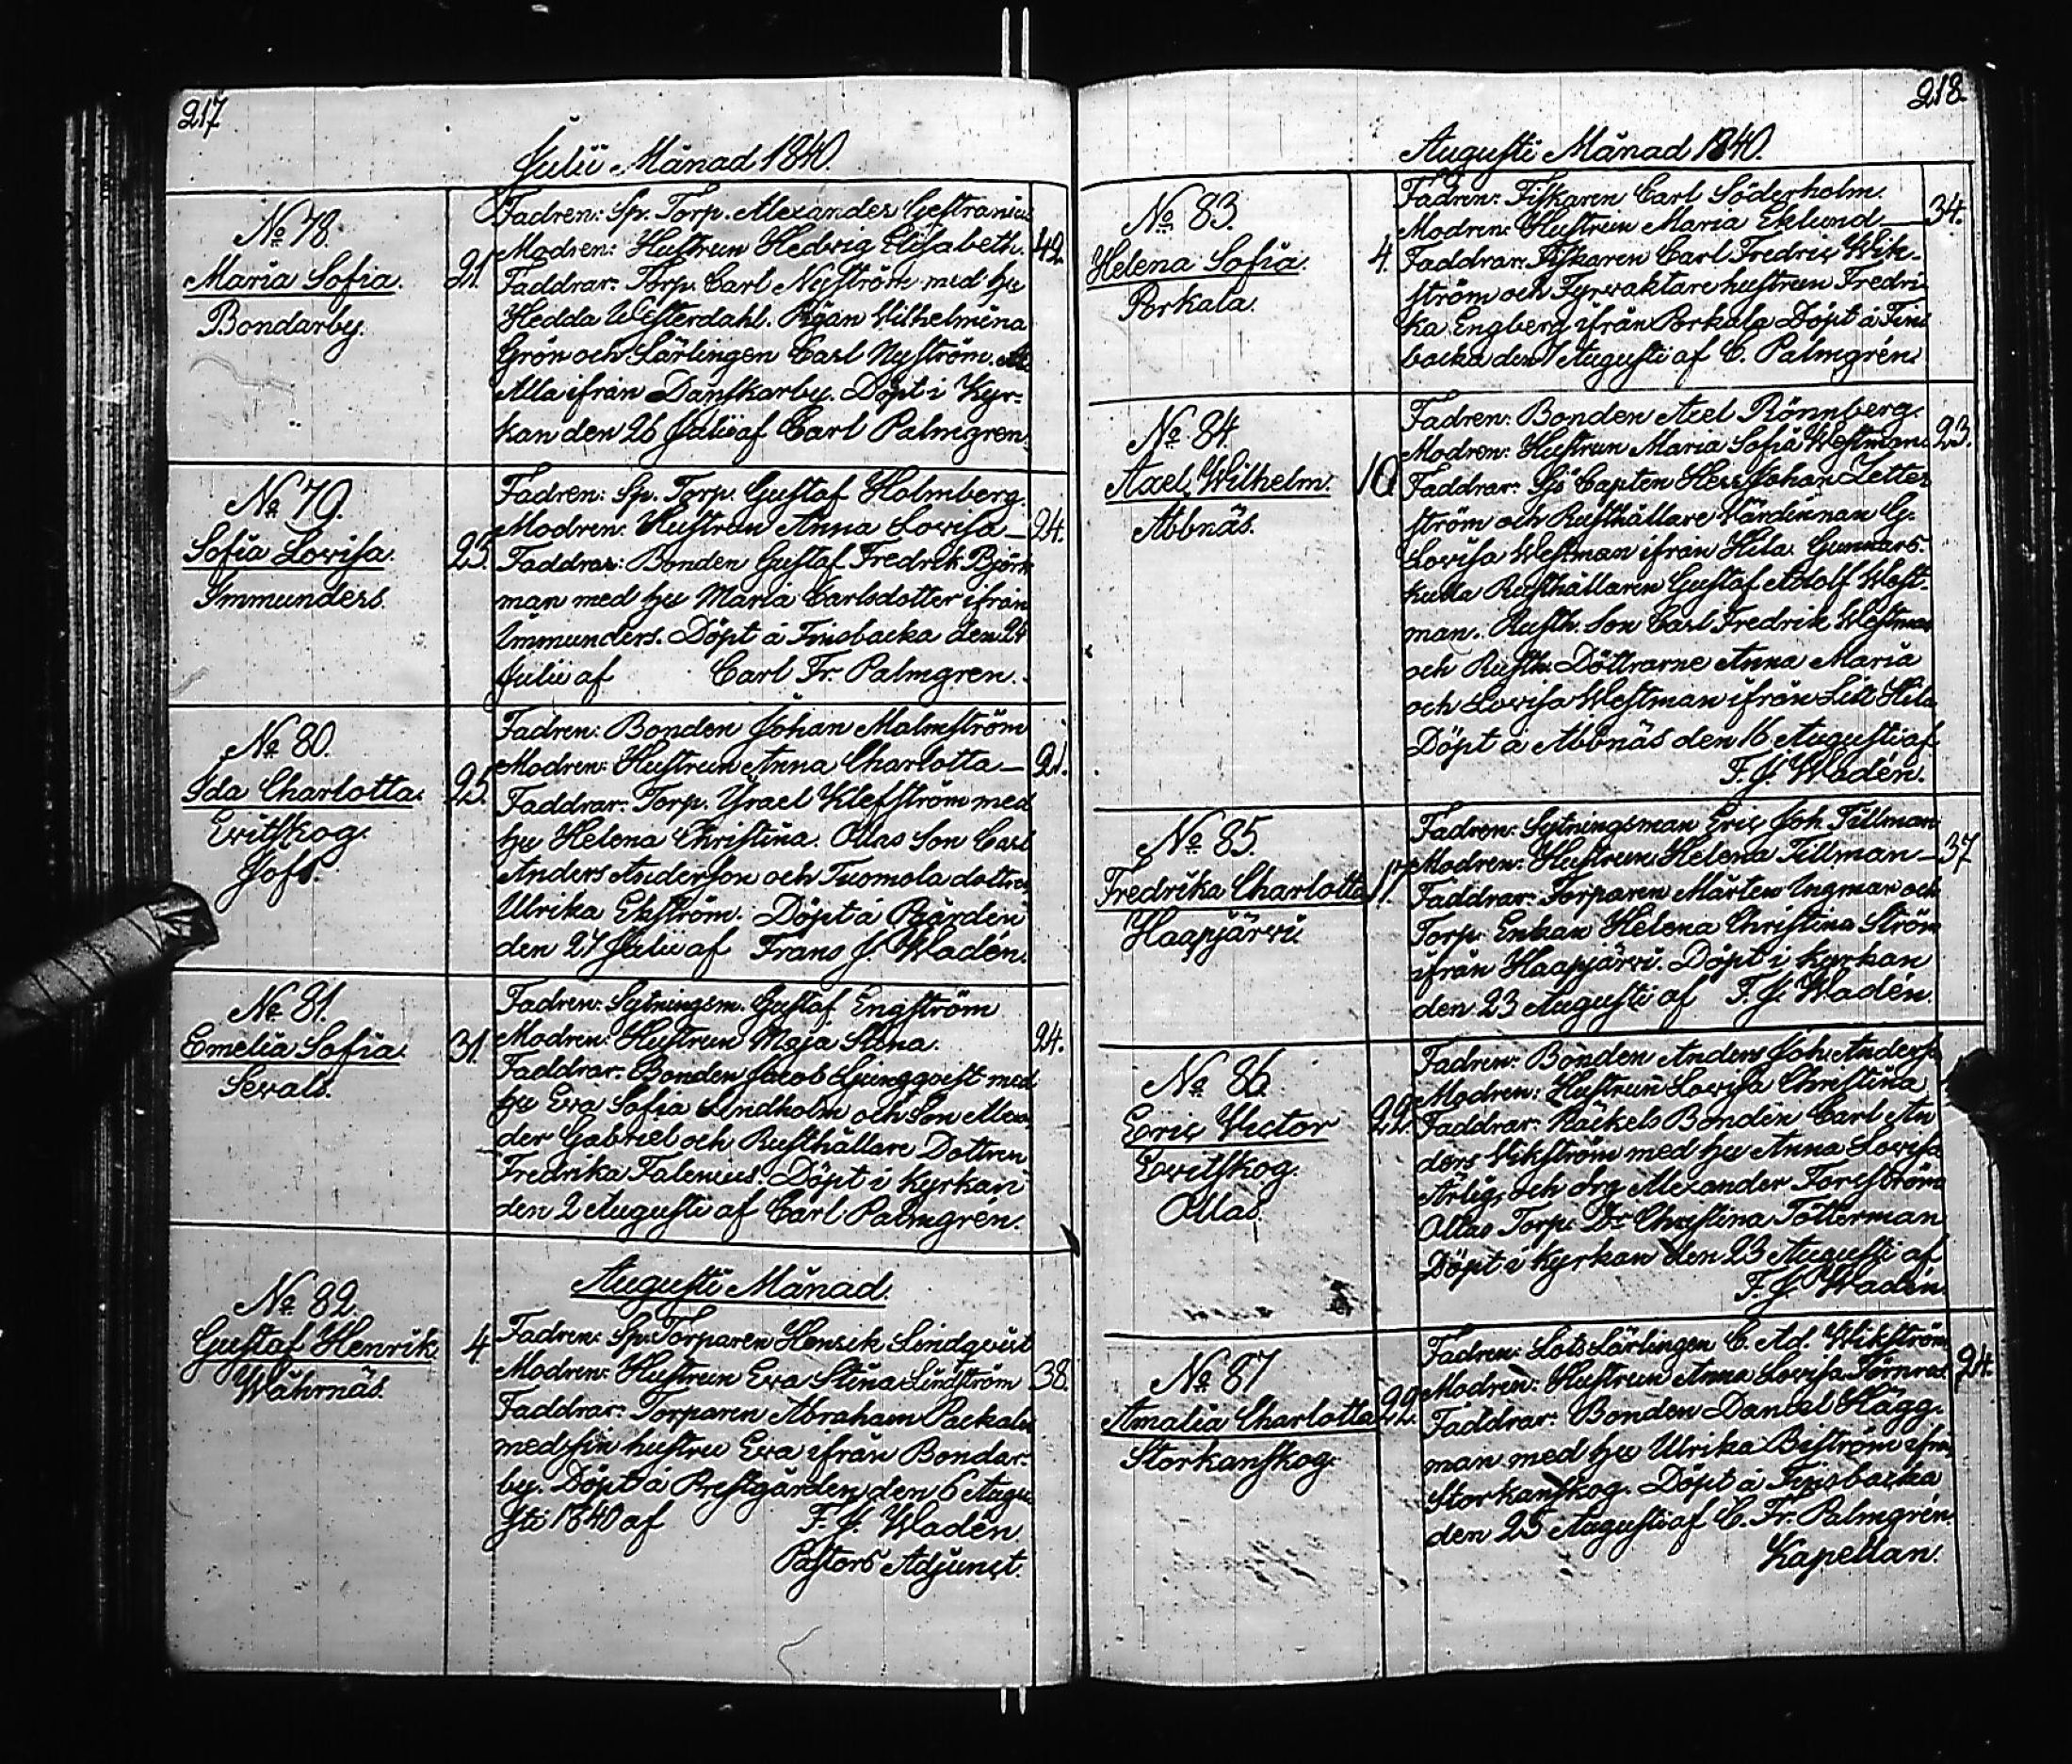 217
Julii Månad 1840.
No 78.
Maria Sofia.
Bondarby.
21.
Fadren: Sp. Torp. Alexander Gestranius
Modren: Hustrun Hedvig Elisabeth.
42
Faddrar: Torp. Carl Nyström med hu
Hedda Westerdahl. Pigan Wilhelmina
Grön och Lärlingen Carl Nyström.
Alla ifrån Danskarby. Döpt i Kyr-
kan den 26 Julii af Carl Palmgren.
No 79.
Sofia Lovisa.
Immunders.
23.
Fadren: Sp. Torp. Gustaf Holmberg.
Modren: Hustrun Anna Lovisa
24.
Faddrar: Bonden Gustaf Fredrik Björk
man med hu Maria Carlsdotter ifrån
Immunders. Döpt å Finsbacka den 24
Julii af Carl Fr. Palmgren.
No 80.
Ida Charlotta.
Evitskog.
Jofs.
25.
Fadren: Bonden Johan Malmström
Modren: Hustrun Anna Charlotta
21.
Faddrar: Torp. Ysrael Klefström med
hu Helena Christina. Ollas Son Carl
Anders Anderson och Tuomola dottren
Ulrika Ekström. Döpt å Pgården
den 27 Julii af Frans J. Wadén.
No 81.
Emelia Sofia.
Sevals.
31.
Fadren: Sytningsm. Gustaf Engström
Modren: Hustrun Maja Stena.
24.
Faddrar: Bonden Jacob Ljungqvist med
hu Eva Sofia Lindholm och Son Alexan
der Gabriel och Rusthållare Dottren
Fredrika Talenius. Döpt i Kyrkan
den 2 Augusti af Carl Palmgren.
Augusti Månad.
No 82.
Gustaf Henrik.
Wåhrnäs.
4
Fadren: Sp. Torparen Henrik Lindqvist
Modren: Hustrun Eva Stina Lindström
38.
Faddrar: Torparen Abraham Packalen
med sin hustru Eva ifrån Bondar-
by. Döpt å Prestgården den 6 Augu
sti 1840 af F. J. Wadén
Pastors Adjunct.
218
Augusti Månad 1840.
No 83.
Helena Sofia.
Porkala.
4.
Fadren: Fiskaren Carl Söderholm.
Modren: Hustrun Maria Eklund
34.
Faddrar: Fiskaren Carl Fredric Wik-
ström och Fyrvaktare hustrun Fredri
ka Engberg ifrån Porkala Döpt å Fins
backa den 7 Augusti af C. Palmgrén.
No 84.
Axel Wilhelm.
Abbnäs.
10
Fadren: Bonden Axel Rönnberg.
Modren: Hustrun Maria Sofia Westman
23.
Faddrar: Sjö Capten Herr Johan Zetter
ström och Rusthållare Värdinnan G.
Lovisa Westman ifrån Hila. Gunnars-
kulla Rusthållaren Gustaf Adolf West-
man. Rusth. Son Carl Fredrik Westman
och Rusth. Döttrarne Anna Maria
och Lovisa Westman ifrån Lill Hila
Döpt å Abbnäs den 16 Augusti af
F. J. Wadén.
No 85.
Fredrika Charlotta
Haapjärvi
17.
Fadren: Sytningsman Eric Joh. Tillman
Modren: Hustrun Helena Tillman
37
Faddrar: Torparen Mårten Ingman och
Torp. Enkan Helena Christina Ström
ifrån Haapjärvi. Döpt i Kyrkan
den 23 Augusti af F. J. Wadén.
No 86.
Eric Victor
Evitskog.
Ollas.
22.
Fadren: Bonden Anders Joh. Anders
Modren: Hustrun Lovisa Christina
Faddrar: Räckels Bonden Carl An
ders Vikström med hu Anna Lovisa
Ärlig och drg Alexander Forsström
Ollas Torp. Dr Christina Tötterman
Döpt i Kyrkan den 23 Augusti af
F. J. Wadén
No 87
Amalia Charlotta
Storkanskog.
22.
Fadren: Lots Lärlingen C. Ad. Wikström
Modren: Hustrun Anna Lovisa Törnros.
24.
Faddrar: Bonden Daniel Hägg-
man med hu Ulrika Biström ifrån
Storkanskog. Döpt å Finsbacka
den 25 Augusti af C. Fr. Palmgrén.
Kapellan.